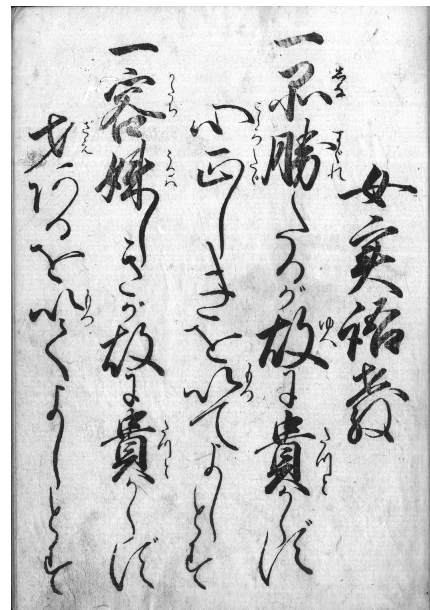 女実語教
一品勝たるが故に貴からず
心正しきを以てよしとす
一容姝しきが故に貴からず
才あるを以てよしとす